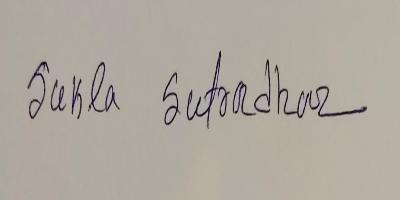 Sukla Sutradhar